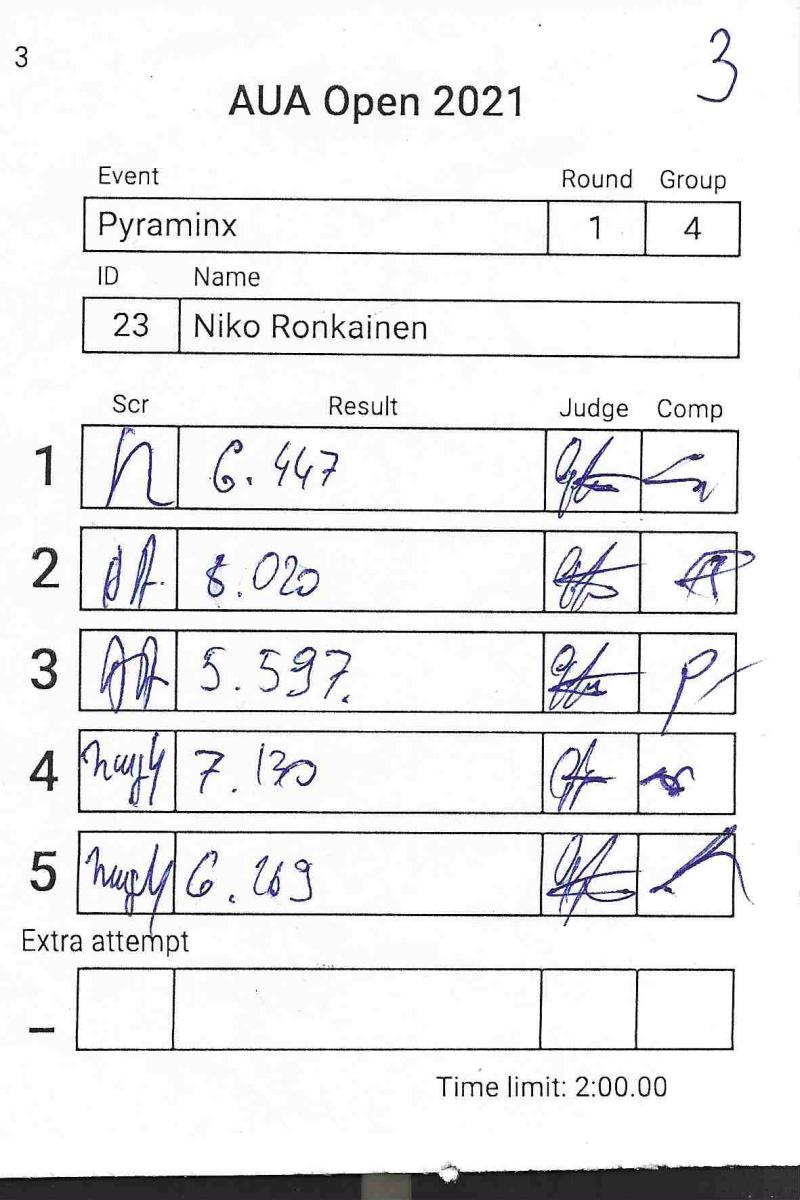 3
3
AUA Open 2021
Event Round Group
Pyraminx 1 4
ID Name
23 Niko Ronkainen
Scr Result Judge Comp
1 6.447
2 8.020
3 5.597.
4 7.130
5 6.269
Extra attempt
–
Time limit: 2:00.00